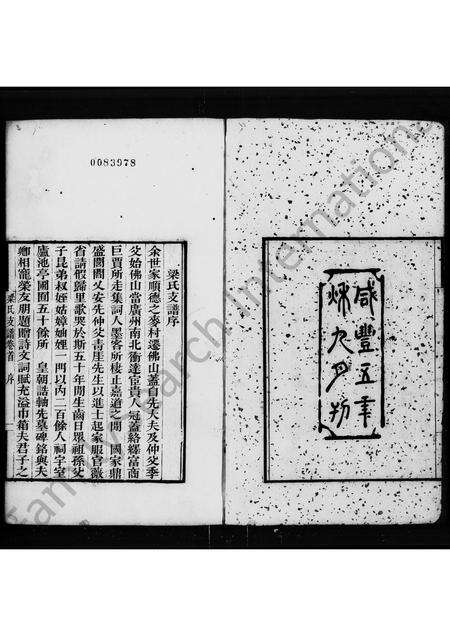 咸豐五年
秌九月刊
0083978
梁氏支譜序
余世家順德之麥村遷佛山蓋自先大夫及仲父季
父始佛山當廣州南北衝達宦貴人冠蓋絡繹富商
巨賈所走集詞人墨客所棲止嘉道之間 國家鼎
盛閭閻乂安先仲父書厓先生以進士起家服官薇
省請假歸里歌哭於斯五十年間生齒日眾祖孫父
子昆弟叔姪姑嫜娣姒一門以內二百餘人祠宇室
廬池亭園囿五十餘所 皇朝誥軸先墓碑銘與夫
鄉相寵榮友朋題贈詩文詞賦充溢巾箱夫君子之
梁氏支譜卷首 序
FamilySearch International